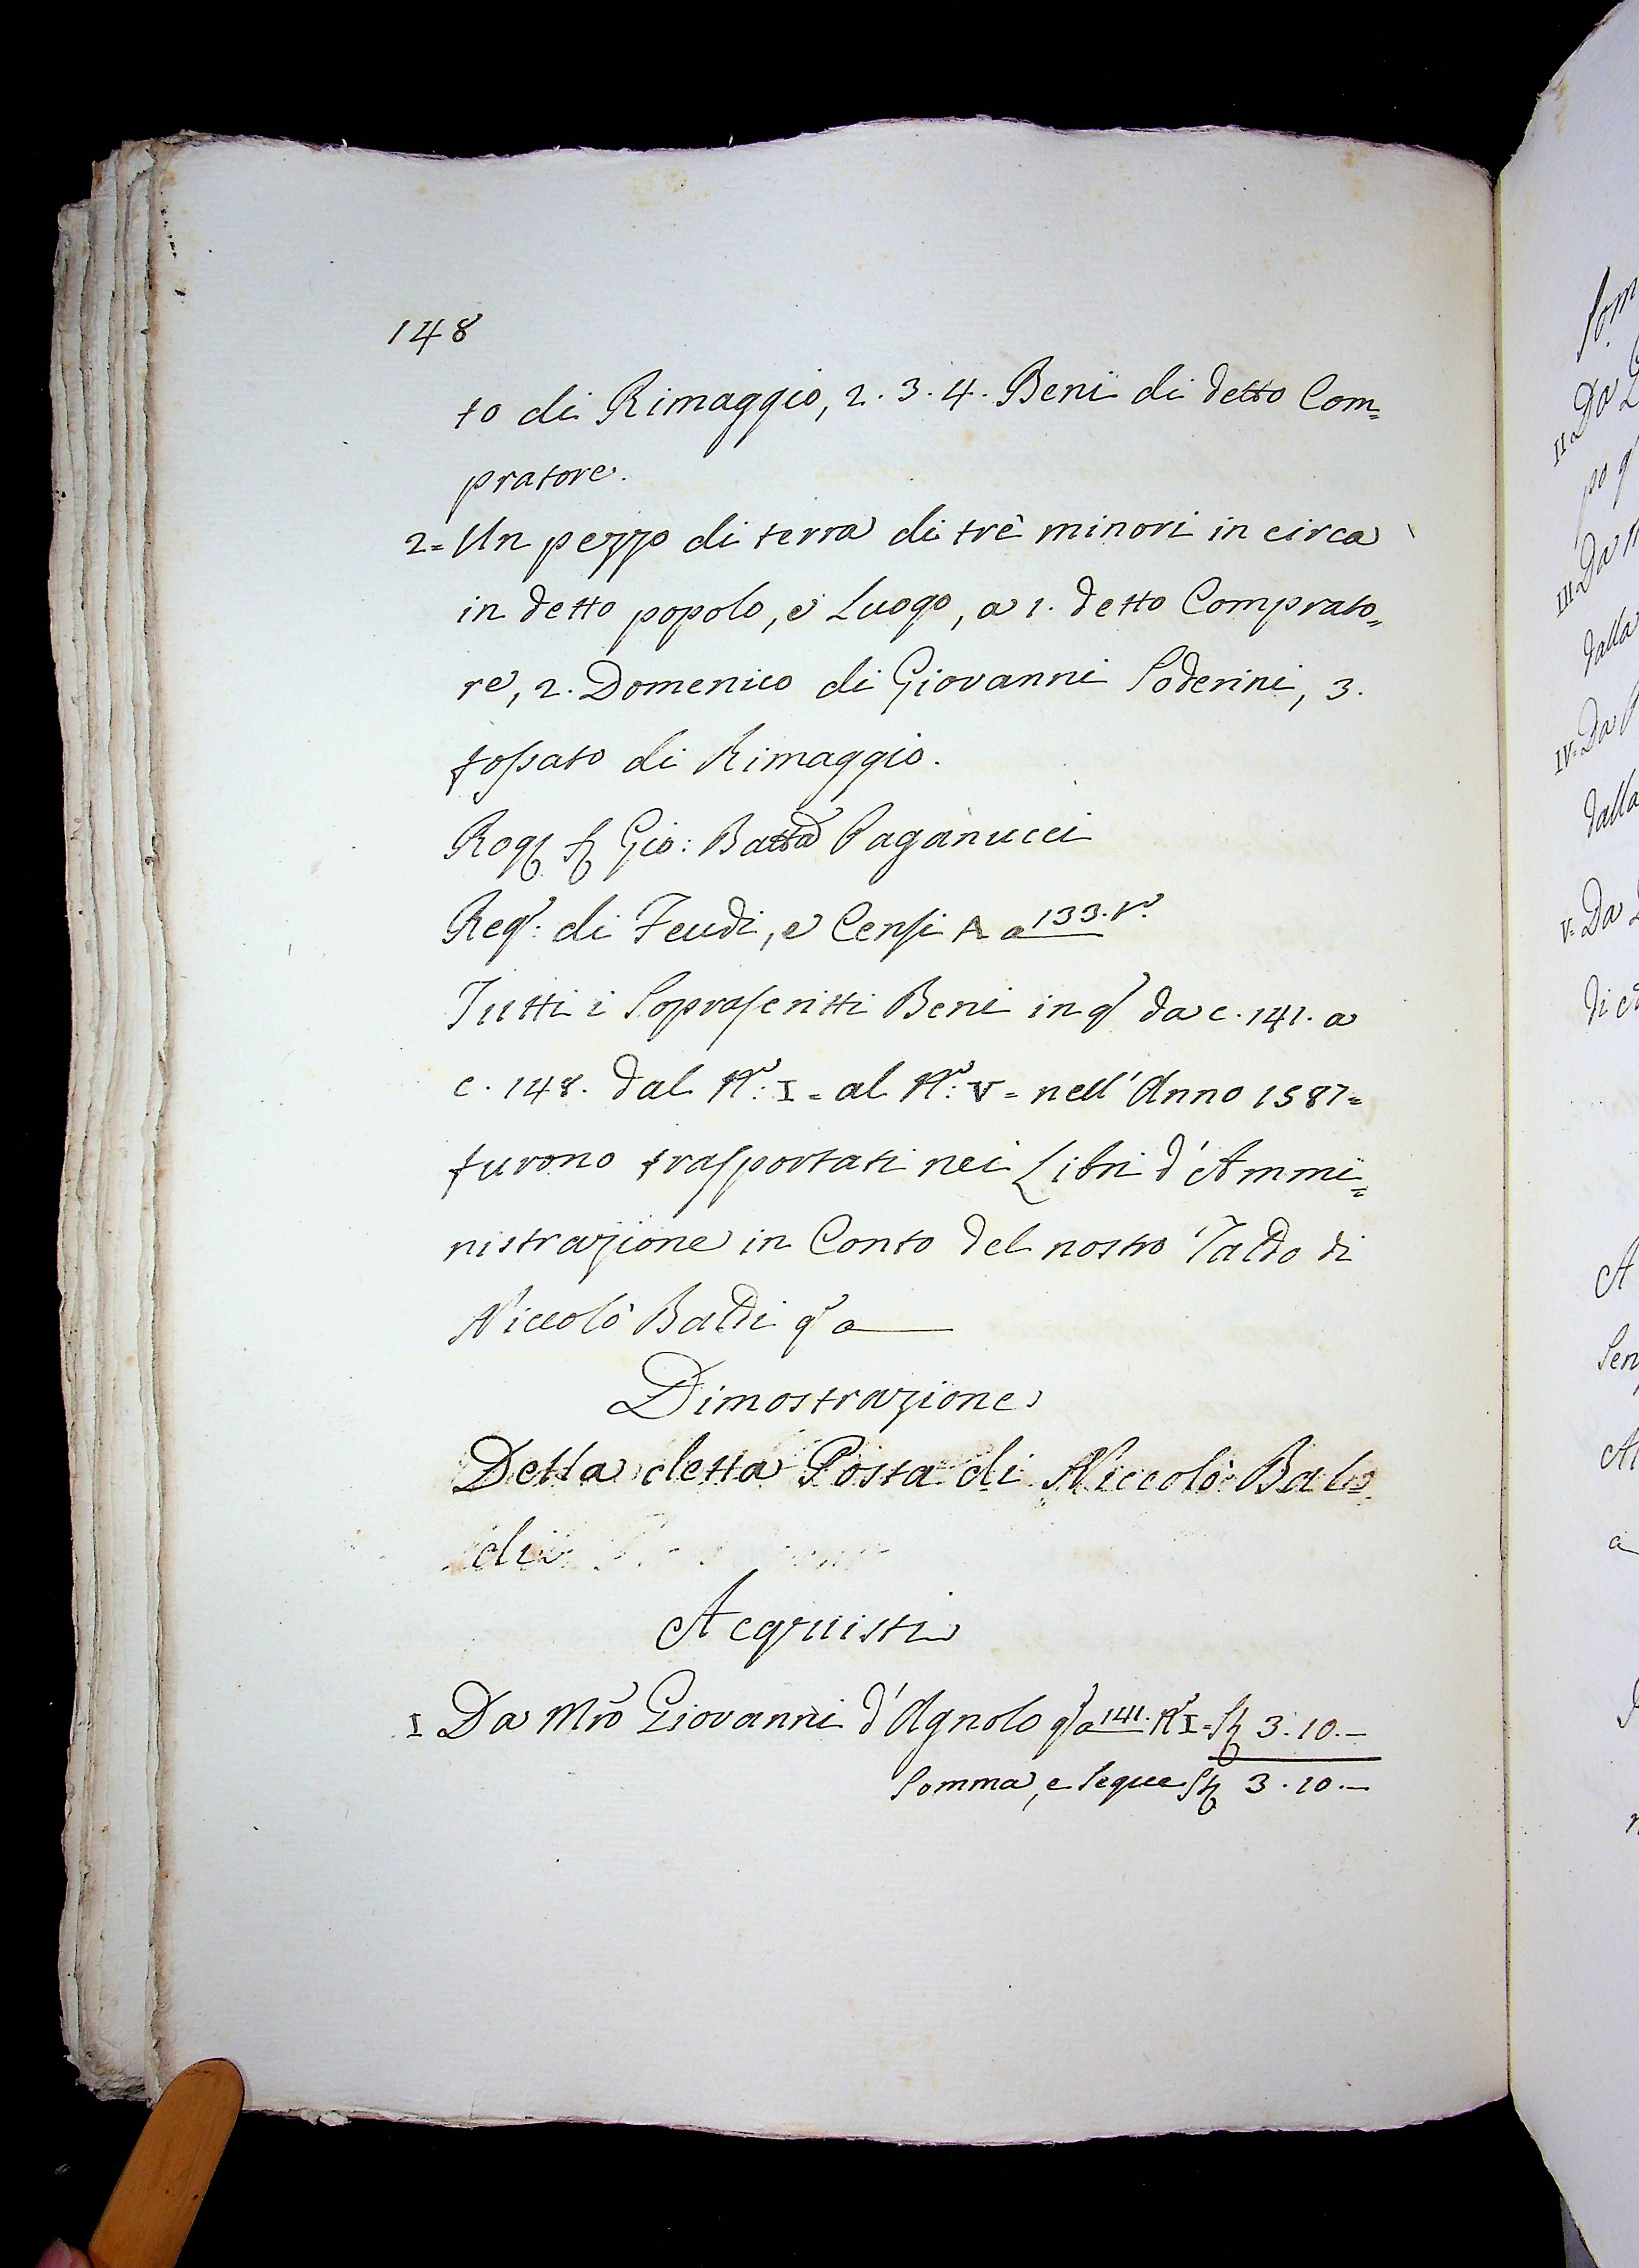 148
to di Rimaggio, 2. 3. 4. Beni di detto Com=
pratore.
2= Un pezzo di terra di trè minori in circa
in detto popolo, e Luogo, a 1. detto Comprato=
re, 2. Domenico di Giovanni Soderini, 3.
fossato di Rimaggio.
Rog. S. Gio: Batta Paganucci
Reg: di Feudi, e Censi A a 133. t.
Tutti i Soprascritti Beni in q da c. 141. a
c. 148. dal N: I= al N: V= nell' Anno 1587=
furono trasportati nei Libri d' Ammi=
nistrazione in Conto del nostro Taddo di
Niccolò Baldi q a
Dimostrazione
Della detta Posta di Niccolò Bal=
di
Acquisti
I Da Mro Giovanni d' Agnolo q a 141. N I= St 3. 10. —
Somma, e segue St 3. 10. —